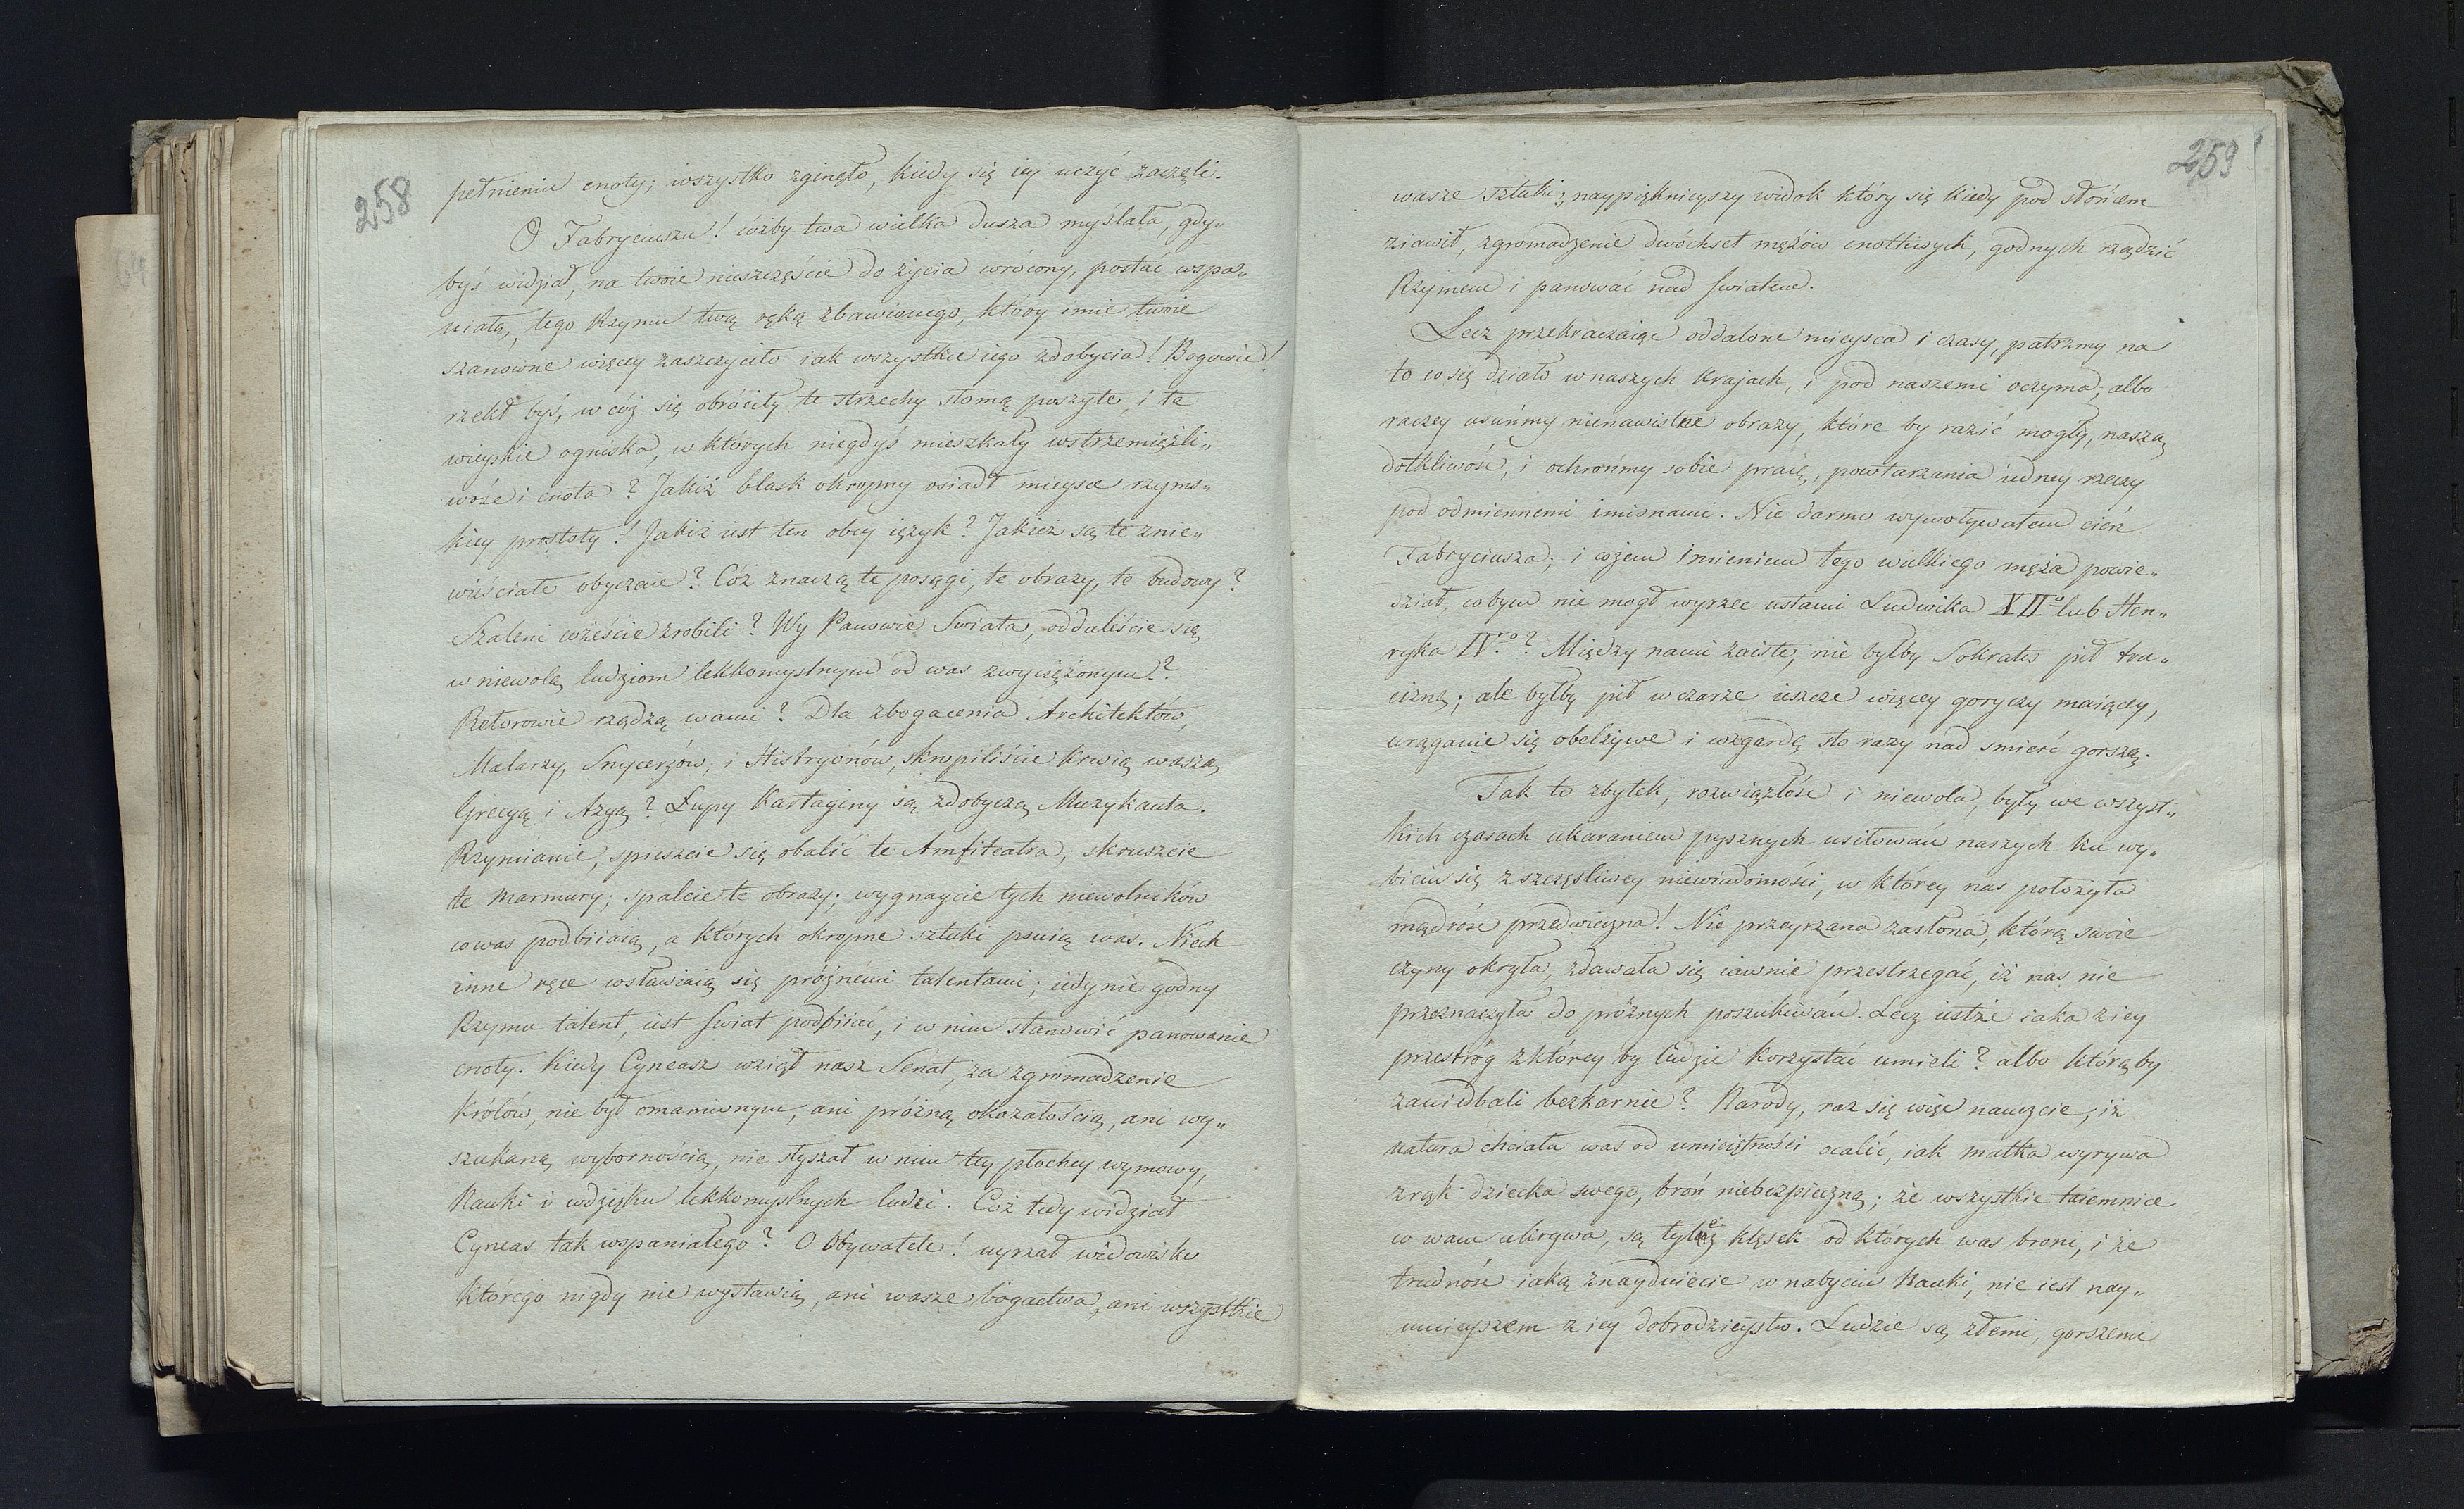 258
pełnieniu cnoty; wszystko zginęło, kiedy się iey uczyć zaczęli.
O Fabryciuszu! cóżby twa wielka dusza myślała, gdy„
byś widział, na twoie nieszczęście do życia wrócony, postać wspa„
niałą, tego Rzymu twą ręką zbawionego, który imie twoie
szanowne więcey zaszczyciło iak wszystkie iego zdobycia! Bogowie!
rzekł byś, w cóż się obróciły te strzechy słomą poszyte, i te
wieyskie ogniska, w których niegdyś mieszkały wstrzemięźli„
wość i cnota? Jakiż blask okropny osiadł mieysce rzyms„
kiey prostoty! Jakiż iest ten obcy ięzyk? Jakież są te znie„
wieściałe obyczaie? Cóż znaczą te posągi, te obrazy, te budowy?
Szaleni cożeście zrobili? Wy Panowie Swiata, oddaliście się
w niewolą ludziom lekkomyslnym od was zwyciężonym?
Retorowie rządzą wami? Dla zbogacenia Architektów,
Malarzy, Snycerzów, i Histryonów, skropiliście krwią waszą
Grecyą i Azyą? Łupy Kartaginy są zdobyczą Muzykanta.
Rzymianie, spieszcie się obalić te Amfiteatra; skruszcie
te marmury; spalcie te obrazy; wygnaycie tych niewolników
co was podbiiaią, a których okropne sztuki psuią was. Niech
inne ręce wsławiaią się próżnémi talentami; iedynie godny
Rzymu talent, iest swiat podbiiać, i w nim stanowić panowanie
cnoty. Kiedy Cyneasz wziął nasz Senat, za zgromadzenie
Królów, nie był omamionym, ani próżną okazałością, ani wy„
szukaną wybornością, nie słyszał w nim tey płochey wymowy,
Nauki i wdzięku lekkomyslnych ludzi. Cóż tedy widział
Cyneas tak wspaniałego? O Obywatele! uyrzał widowisko
którego nigdy nie wystawią, ani wasze bogactwa, ani wszystkie
259
wasze sztuki; naypięknieyszy widok który się kiedy pod słońcem
ziawił, zgromadzenie dwóchset mężów cnotliwych, godnych rządzić
Rzymem i panować nad swiatem.
Lecz przekraczaiąc oddalone mieysca i czasy, patrzmy na
to co się działo w naszych krajach, i pod naszemi oczyma; albo
raczey usuńmy nienawistne obrazy, które by razić mogły, naszą
dotkliwość, i ochrońmy sobie pracę, powtarzania iedney rzeczy
pod odmiennemi imionami. Nie darmo wywoływałem cień
Fabryciusza; i cożem imieniem tego wielkiego męża powie„
dział, cobym nie mogł wyrzec ustami Ludwika XIIº lub Hen„
ryka IVº? Między nami zaiste, nie byłby Sokrates pił tru„
ciznę; ale byłby pił w czarze ieszcze więcey goryczy maiącey,
urąganie się obelżywe i wzgardę sto razy nad smierć gorszą.
Tak to zbytek, rozwiązłość i niewola, były we wszyst„
kich czasach ukaraniem pysznych usiłowań naszych ku wy„
biciu się z szczęsliwey niewiadomości, w którey nas położyła
mądrość przedwieczna! Nie przeyrzana zasłona, którą swoie
czyny okryła, zdawała się iawnie przestrzegać, iż nas nie
przeznaczyła do próżnych poszukiwań. Lecz iestże iaka z iey
przestróg z którey by ludzie korzystać umieli? albo którąby
zaniedbali bezkarnie? Narody, raz się więc nauczcie, iż
natura chciała was od umieiętności ocalić, iak matka wyrywa
z rąk dziecka swego, broń niebezpieczną; że wszystkie taiemnice
co wam ukrywa, są tyle klęsek od których was broni, i że
trudność iaką znayduiecie w nabyciu Nauki, nie iest nay„
mnieyszem z iey dobrodzieystw. Ludzie są złemi, gorszemi